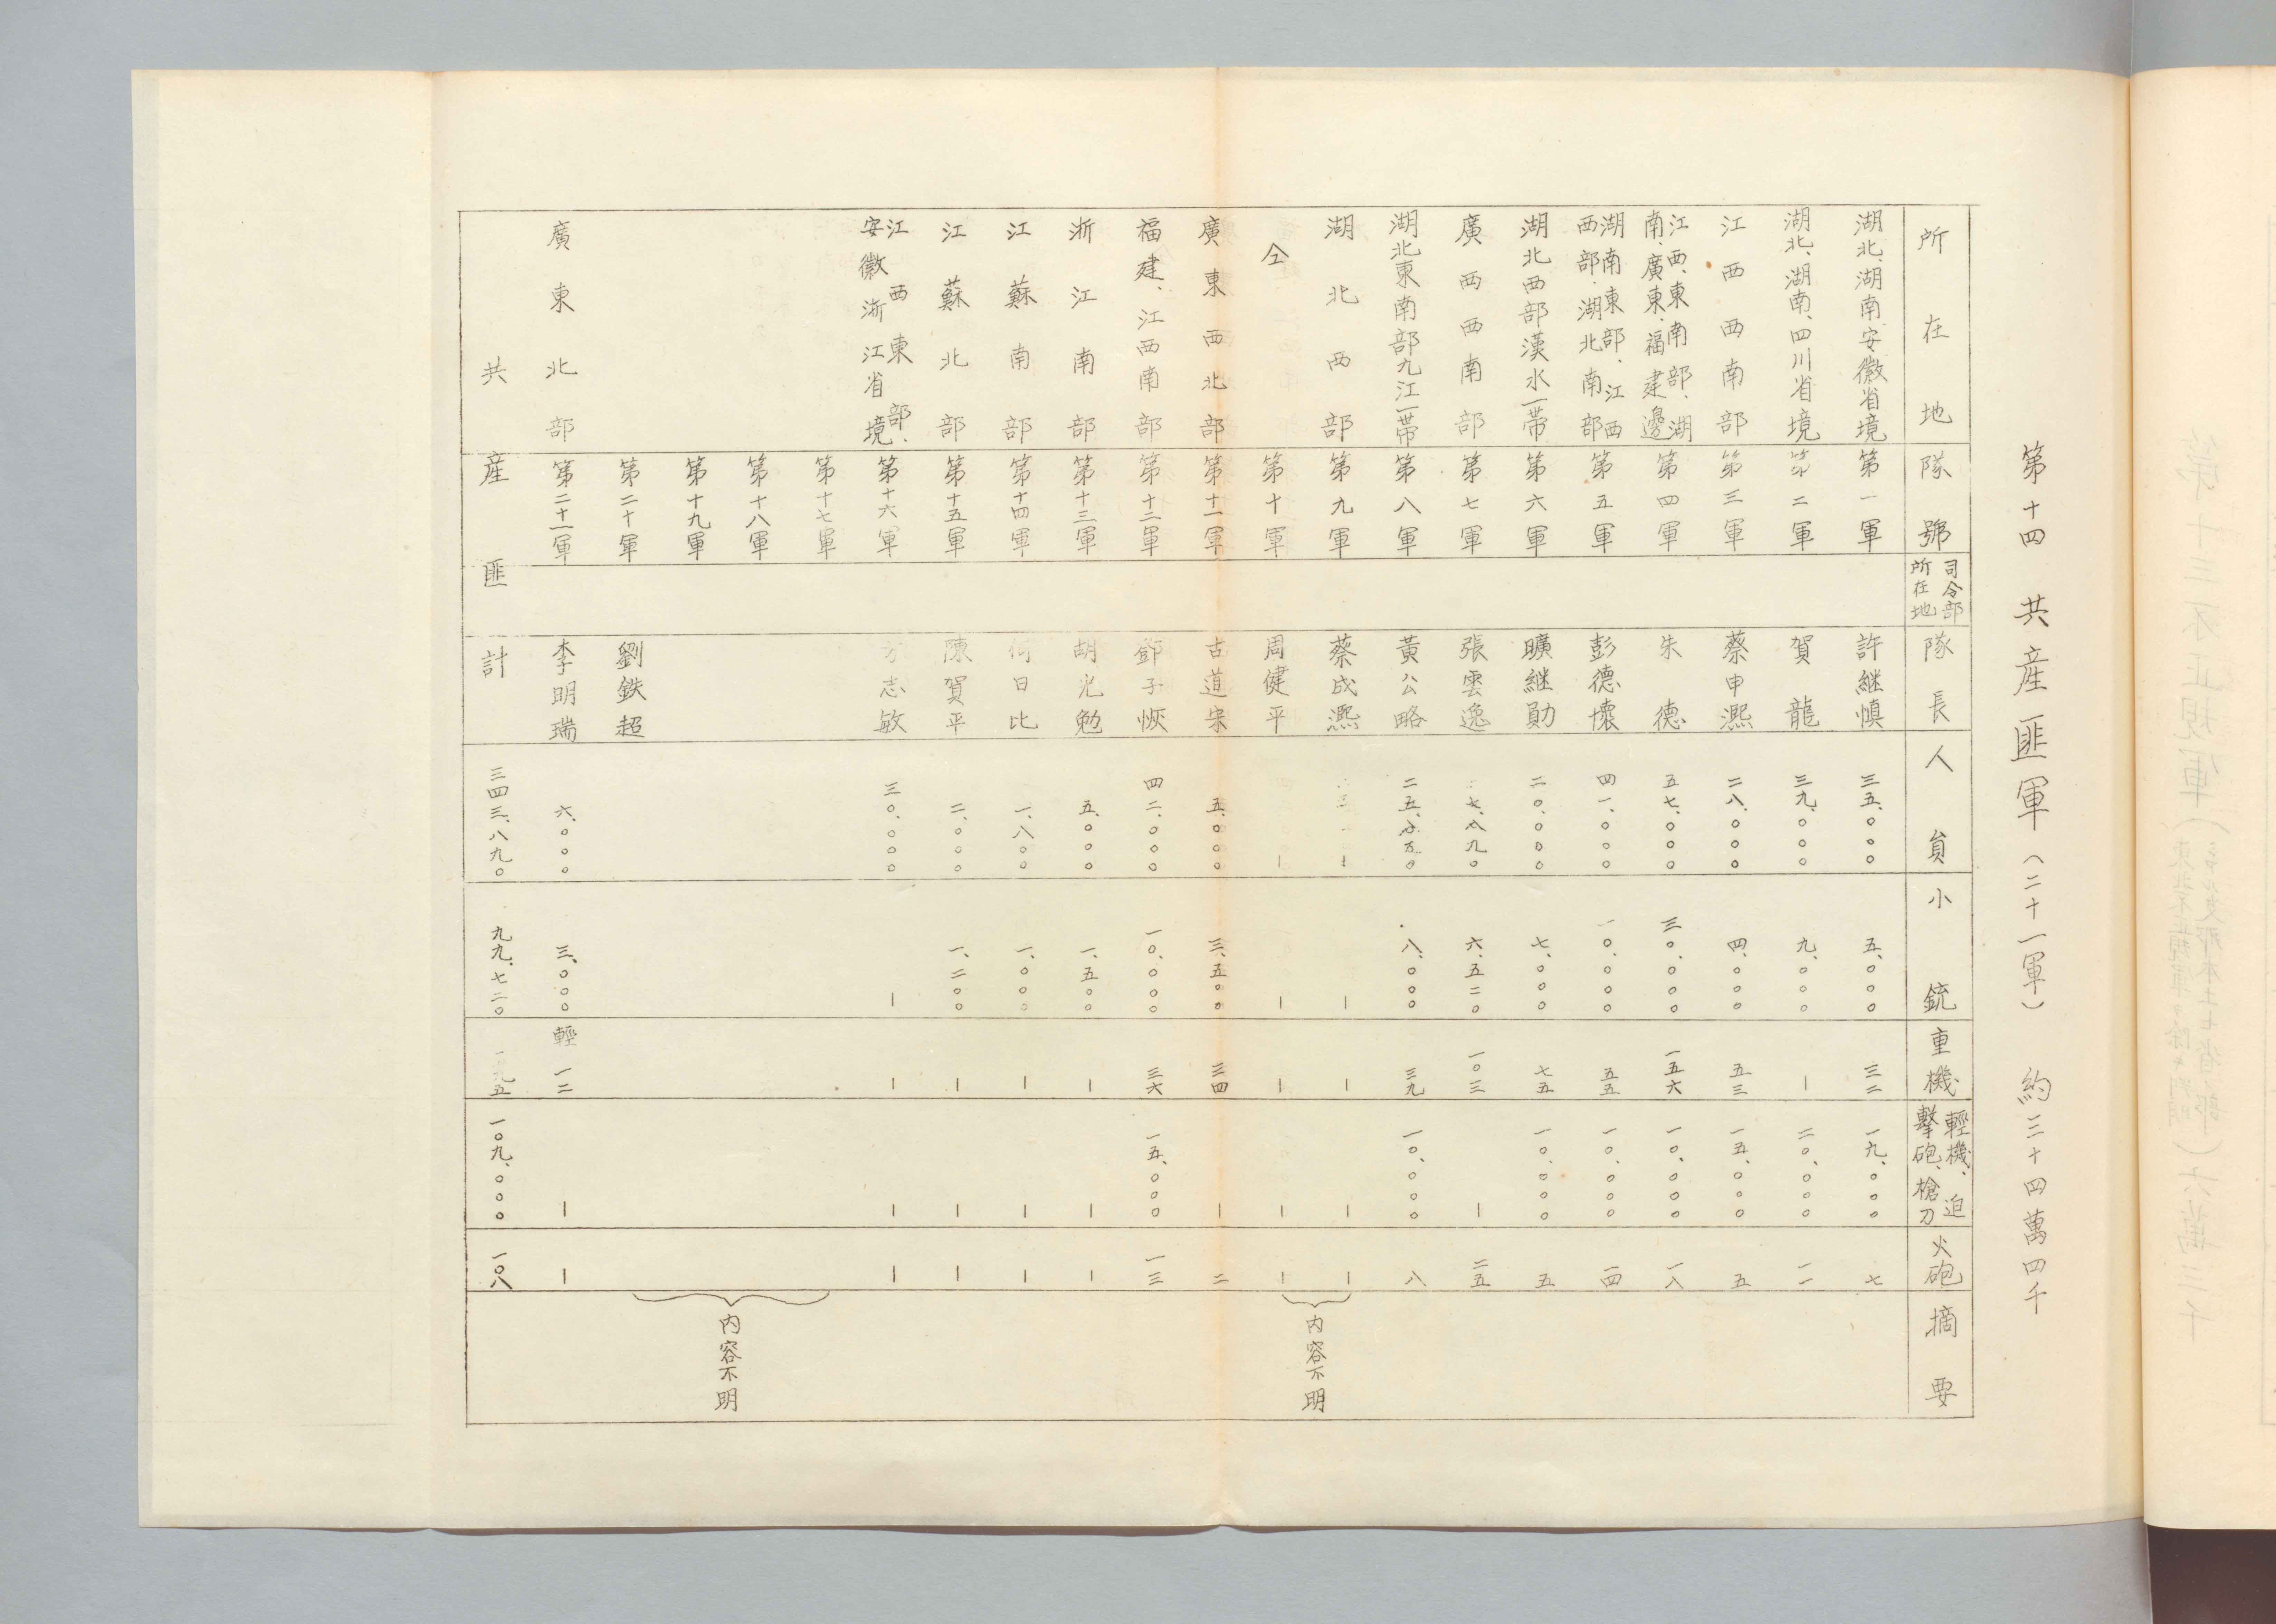 第十四 共産匪軍（二十一軍） 約三十四萬四千
所在地 隊號 司令部所在地 隊長 人員 小銃 重機 輕機、迫擊砲、槍刀 火砲 摘要
湖北、湖南、安徽省境 第一軍 許継慎 三五、〇〇〇 五、〇〇〇 三二 一九、〇〇〇 七
湖北、湖南、四川省境 第二軍 賀龍 三九、〇〇〇 九、〇〇〇 — 二〇、〇〇〇 一一
江西西南部 第三軍 蔡申熙 二八、〇〇〇 四、〇〇〇 五三 一五、〇〇〇 五
江西、東南部、湖南、廣東、福建邊 第四軍 朱德 五七、〇〇〇 三〇、〇〇〇 一五六 一〇、〇〇〇 一八
湖南東部、江西西部、湖北南部 第五軍 彭德懷 四一、〇〇〇 一〇、〇〇〇 五五 一〇、〇〇〇 一四
湖北西部漢水一帯 第六軍 曠継勛 二〇、〇〇〇 七、〇〇〇 七五 一〇、〇〇〇 五
廣西西南部 第七軍 張雲逸 七、八九〇 六、五二〇 一〇三 — 二五
湖北東南部九江一帯 第八軍 黃公略 八、〇〇〇 三九 一〇、〇〇〇 八
湖北西部 第九軍 蔡成熙 — — — — — 內容不明
仝 第十軍 周健平 — — — — —
廣東西北部 第十一軍 古道宋 五、〇〇〇 三、五〇〇 三四 — 二
福建、江西南部 第十二軍 鄧子恢 四二、〇〇〇 一〇、〇〇〇 三六 一五、〇〇〇 一三
浙江南部 第十三軍 胡光勉 五、〇〇〇 一、五〇〇 — — —
江蘇南部 第十四軍 何日比 一、八〇〇 一、〇〇〇 — — —
江蘇北部 第十五軍 陳賀平 二、〇〇〇 一、二〇〇 — — —
江西東部、安徽浙江省境 第十六軍 方志敏 三〇、〇〇〇 — — — —
第十七軍
第十八軍 內容不明
第十九軍
第二十軍 劉鉄超
廣東北部 第二十一軍 李明瑞 六、〇〇〇 三、〇〇〇 輕一二 — —
共産匪計 三四三、八九〇 九九、七二〇 一〇九、〇〇〇 一〇八